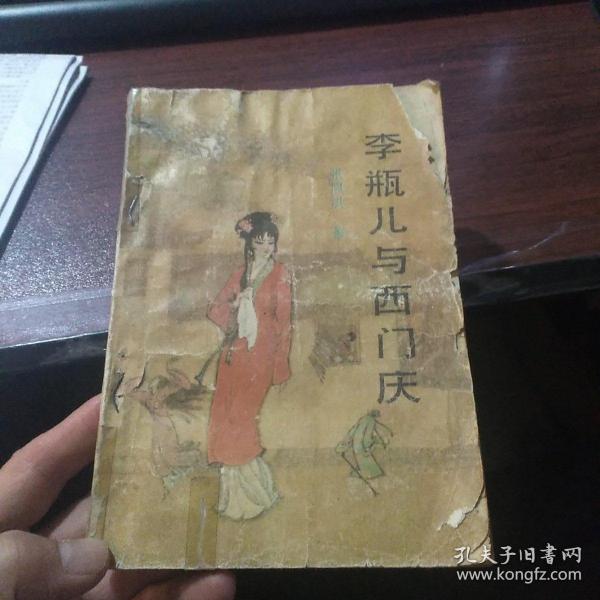 李瓶儿与西门庆
孔夫子旧書网
www.kongfz.com